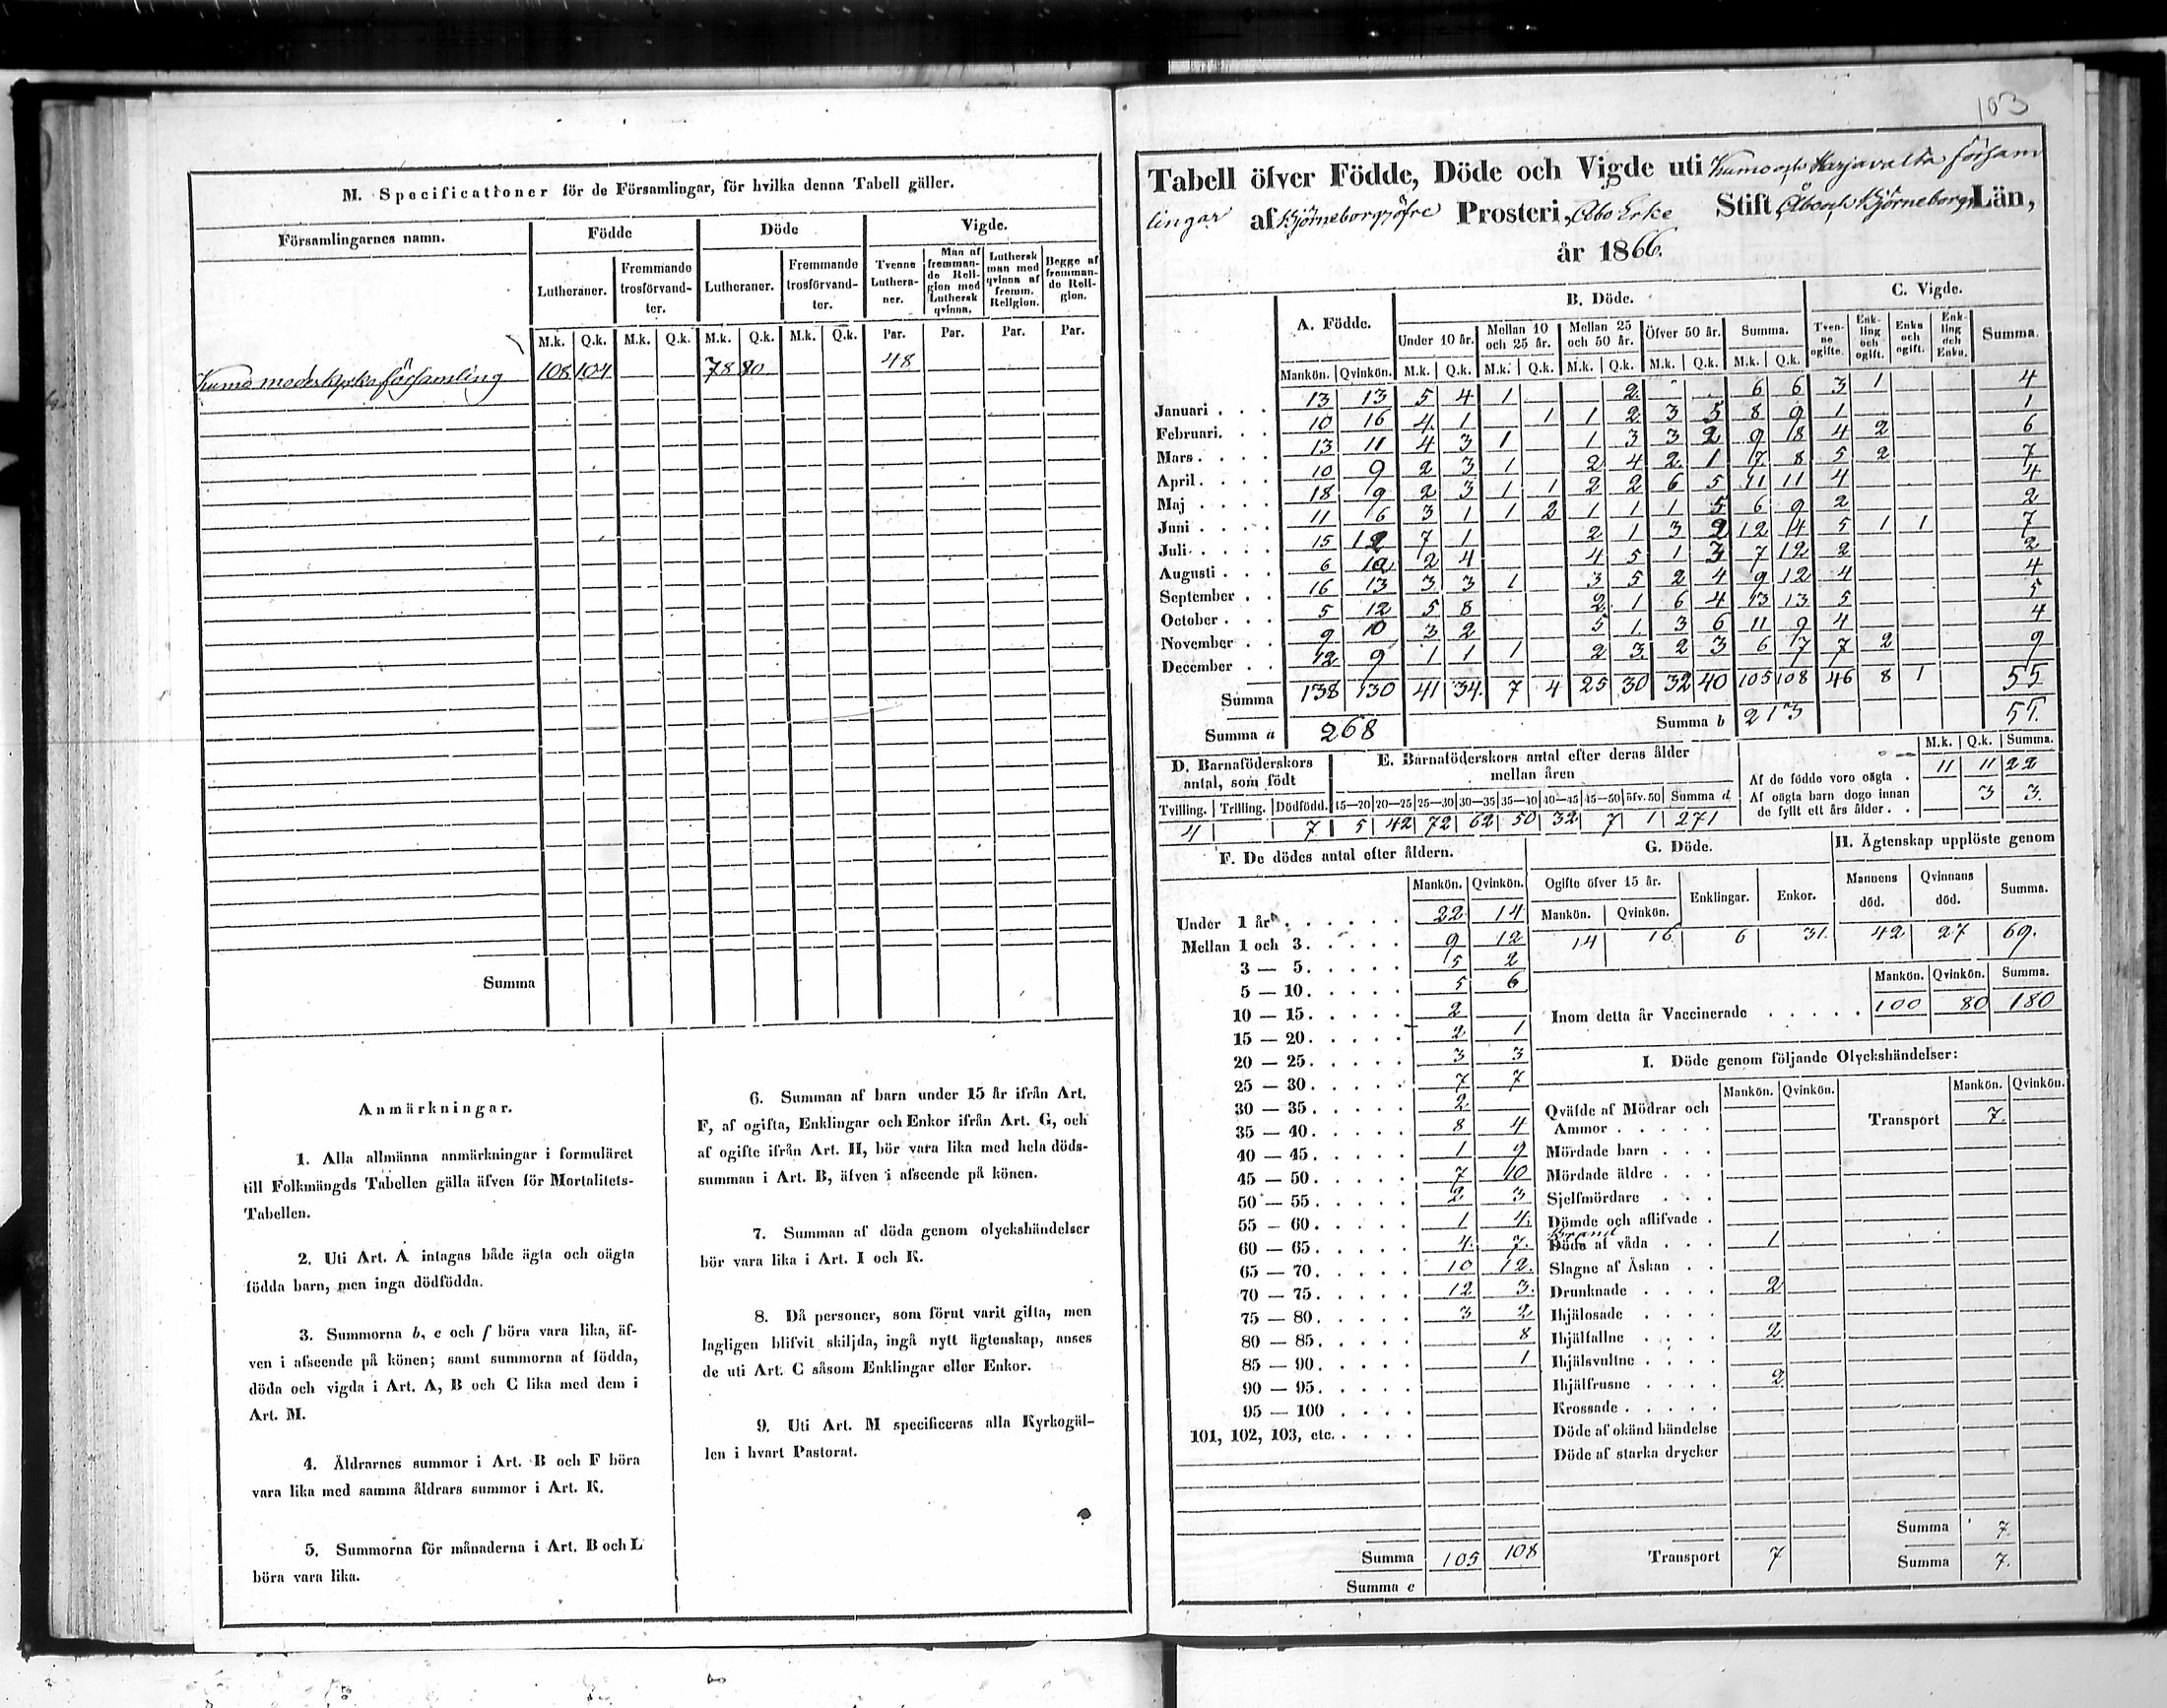 M. Specificationer för de Församlingar, för hvilka denna Tabell gäller.
Församlingarnes namn. Födde Döde Vigde.
Lutheraner. Fremmande trosförvandter. Lutheraner. Fremmande trosförvandter. Tvenne Lutheraner. Man af fremmande Religion med Luthersk qvinna. Luthersk man med qvinna af fremm. Religion. Begge af fremmande Religion.
M.k. Q.k. M.k. Q.k. M.k. Q.k. M.k. Q.k. Par. Par. Par. Par.
Kumo moderkyrko församling 108 104 78 80 48
Summa
Anmärkningar.
1. Alla allmänna anmärkningar i formuläret
till Folkmängds Tabellen gälla äfven för Mortalitets-
Tabellen.
2. Uti Art. A intagas både ägta och oägta
födda barn, men inga dödfödda.
3. Summorna b, c och f böra vara lika, äf-
ven i afseende på könen; samt summorna af födda,
döda och vigda i Art. A, B och C lika med dem i
Art. M.
4. Åldrarnes summor i Art. B och F böra
vara lika med samma åldrars summor i Art. K.
5. Summorna för månaderna i Art. B och L
böra vara lika.
6. Summan af barn under 15 år ifrån Art.
F, af ogifta, Enklingar och Enkor ifrån Art. G, och
af ogifte ifrån Art. H, bör vara lika med hela döds-
summan i Art. B, äfven i afseende på könen.
7. Summan af döda genom olyckshändelser
bör vara lika i Art. I och K.
8. Då personer, som förut varit gifta, men
lagligen blifvit skiljda, ingå nytt ägtenskap, anses
de uti Art. C såsom Enklingar eller Enkor.
9. Uti Art. M specificeras alla Kyrkogäl-
len i hvart Pastorat.
103
Tabell öfver Födde, Döde och Vigde uti Kumo och Harjavalta församlingar
af Björneborgs öfre Prosteri, Åbo Erke Stift, Åbo och Björneborgs Län,
år 1866.
A. Födde. B. Döde. C. Vigde.
Under 10 år. Mellan 10 och 25 år. Mellan 25 och 50 år. Öfver 50 år. Summa. Tvenne ogifte. Enkling och ogift. Enka och ogift. Enkling och Enka. Summa.
Mankön. Qvinkön. M.k. Q.k. M.k. Q.k. M.k. Q.k. M.k. Q.k. M.k. Q.k.
Januari 13 13 5 4 1 2 6 6 3 1 4
Februari 10 16 4 1 1 1 2 3 5 8 9 1 1
Mars 13 11 4 3 1 1 3 3 2 9 8 4 2 6
April 10 9 2 3 1 2 4 2 1 7 8 5 2 7
Maj 18 9 2 3 1 1 2 2 6 5 11 11 4 4
Juni 11 6 3 1 1 2 1 1 1 5 6 9 2 2
Juli 15 12 7 1 2 1 3 2 12 4 5 1 1 7
Augusti 6 10 2 4 4 5 1 3 7 12 2 2
September 16 13 3 3 1 3 5 2 4 9 12 4 4
October 5 12 5 8 2 1 6 4 13 13 5 5
November 9 10 3 2 5 1 3 6 11 9 4 4
December 12 9 1 1 1 2 3 2 3 6 7 7 2 9
Summa 138 130 41 34 7 4 25 30 32 40 105 108 46 8 1 55
Summa a 268 Summa b 213 55.
D. Barnaföderskors antal, som födt
Tvilling. Trilling. Dödfödd.
4 7
E. Barnaföderskors antal efter deras ålder mellan åren
15—20 20—25 25—30 30—35 35—40 40—45 45—50 öfv. 50 Summa d
5 42 72 62 50 32 7 1 271
M.k. Q.k. Summa.
Af de födde voro oägta . 11 11 22
Af oägta barn dogo innan de fyllt ett års ålder . . 3 3.
F. De dödes antal efter åldern.
Mankön. Qvinkön.
Under 1 år 22 14
Mellan 1 och 3. 9 12
3 — 5. 5 2
5 — 10. 5 6
10 — 15. 2
15 — 20. 2 1
20 — 25. 3 3
25 — 30. 7 7
30 — 35. 2
35 — 40. 8 4
40 — 45. 1 9
45 — 50. 7 10
50 — 55. 2 3
55 — 60. 1 4.
60 — 65. 4. 7.
65 — 70. 10 12.
70 — 75. 12 3.
75 — 80. 3 2
80 — 85. 8
85 — 90. 1
90 — 95.
95 — 100
101, 102, 103, etc.
Summa 105 108
Summa c
G. Döde.
Ogifte öfver 15 år. Enklingar. Enkor.
Mankön. Qvinkön.
14 16 6 31.
H. Ägtenskap upplöste genom
Mannens död. Qvinnans död. Summa.
42 27 69.
Mankön. Qvinkön. Summa.
Inom detta år Vaccinerade 100 80 180
I. Döde genom följande Olyckshändelser:
Mankön. Qvinkön. Mankön. Qvinkön.
Qväfde af Mödrar och Ammor Transport 7.
Mördade barn
Mördade äldre
Sjelfmördare
Dömde och aflifvade
Brand
Döde af våda 1
Slagne af Åskan
Drunknade 2
Ihjälosade
Ihjälfallne 2
Ihjälsvultne
Ihjälfrusne 2
Krossade
Döde af okänd händelse
Döde af starka drycker
Summa 7.
Transport 7 Summa 7.